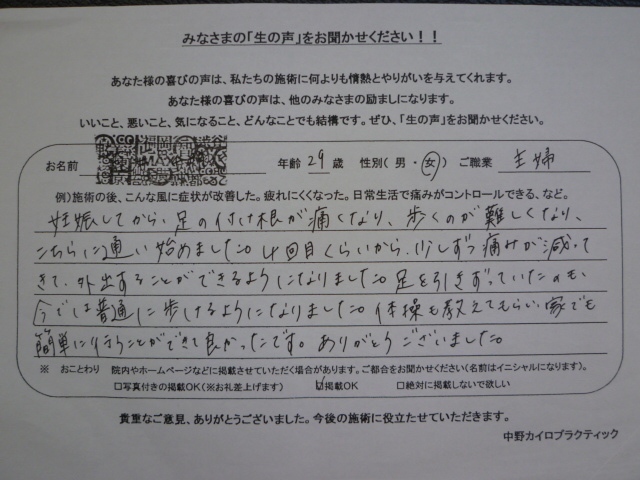 みなさまの「生の声」をお聞かせください！！
あなた様の喜びの声は、私たちの施術に何よりも情熱とやりがいを与えてくれます。
あなた様の喜びの声は、他のみなさまの励ましになります。
いいこと、悪いこと、気になること、どんなことでも結構です。ぜひ、「生の声」をお聞かせください。
お名前 年齢 29 歳 性別（ 男 ・ 女 ） ご職業 主婦
例）施術の後、こんな風に症状が改善した。疲れにくくなった。日常生活で痛みがコントロールできる、など。
妊娠してから、足の付け根が痛くなり、歩くのが難しくなり、
こちらに通い始めました。4回目くらいから、少しずつ痛みが減って
きて、外出することができるようになりました。足を引きずっていたのも、
今では普通に歩けるようになりました。体操も教えてもらい、家でも
簡単に行うことができて良かったです。ありがとうございました。
※ おことわり 院内やホームページなどに掲載させていただく場合があります。ご都合をお聞かせください（名前はイニシャルになります）。
□写真付きの掲載OK（※お礼差上げます） ☑掲載OK □絶対に掲載しないで欲しい
貴重なご意見、ありがとうございました。今後の施術に役立たせていただきます。
中野カイロプラクティック